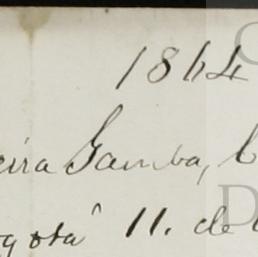 1864
eira Gamba, C
ogotá 11. de